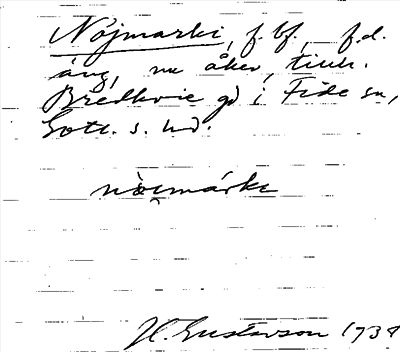 Nöjmarki, f. bf., f.d.
äng, nu åker, tillh.
Bredkvie gd i Fide sn,
Gotl. s. hd.
nòimárkı
H. Gustavson 1938